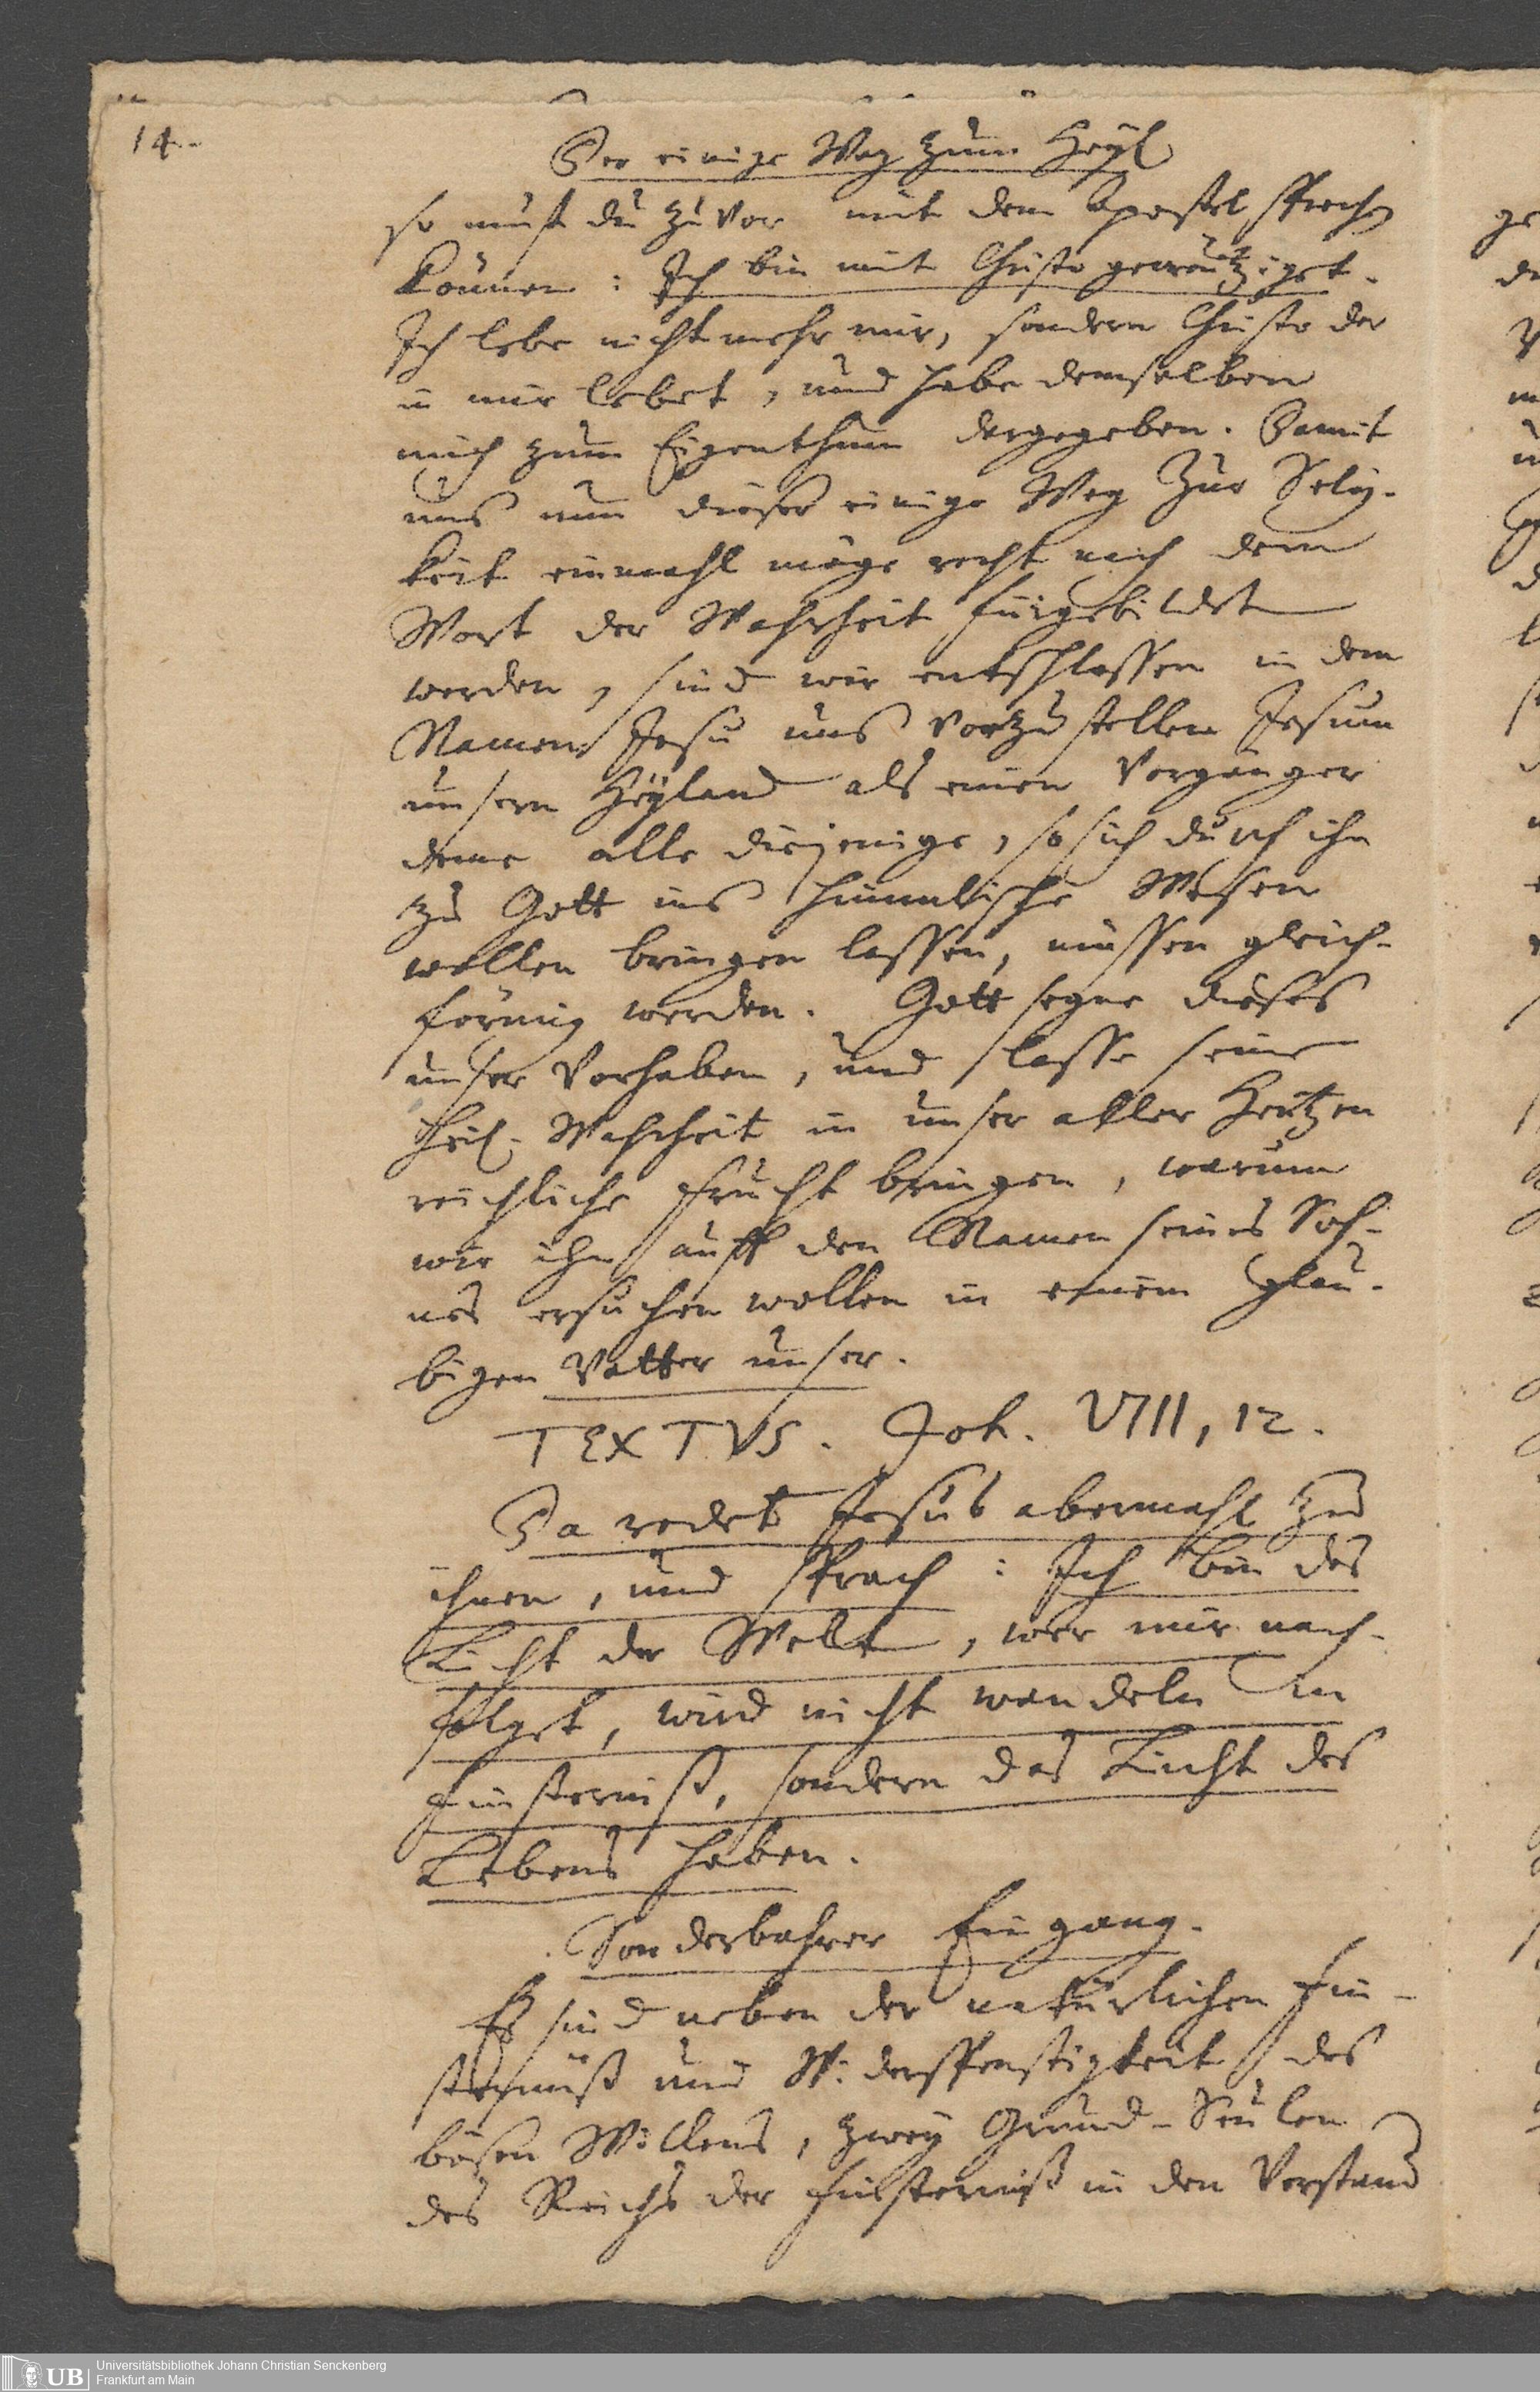 14.
Der einige Weg zum Heyl
so must du zuvor mit dem Apostel sprechen
können: Ich bin mit Christo gecreutziget.
Ich lebe nicht mehr mir, sondern Christo der
in mir lebet, und habe demselben
mich zum Eigenthum dargegeben. Damit
uns nun dieser einige Weg zur Selig-
keit einmahl möge recht nach dem
Wort der Wahrheit fürgebildet
werden, sind wir entschlossen in dem
Namen Jesu uns vorzustellen Jesum
unsern Heyland als einen Vorgänger
deme alle diejenige, so sich durch ihn
zu Gott ins himmlische Wesen
wollen bringen lassen, müssen gleich-
förmig werden. Gott segne dieses
unser Vorhaben, und lasse seine
heil. Wahrheit in unser aller Hertzen
reichliche Frucht bringen, warum
wir ihn auff den Namen seines Soh-
nes ersuchen wollen in einem glau-
bigen Vatter unser.
TEXTVS. Joh. VIII, 12.
Da redet Jesus abermahl zu
ihnen, und sprach: Ich bin das
Licht der Welt, wer mir nach-
folget, wird nicht wandeln in
Finsterniß, sondern das Licht des
Lebens haben.
Sonderbahrer Eingang.
Es sind neben der natürlichen Fin-
sternüß und Widerspenstigkeit des
bösen Willens, zwey Grund-Seulen
des Reichs der Finsterniß in den Verstand
Universitätsbibliothek Johann Christian Senckenberg
Frankfurt am Main
UB